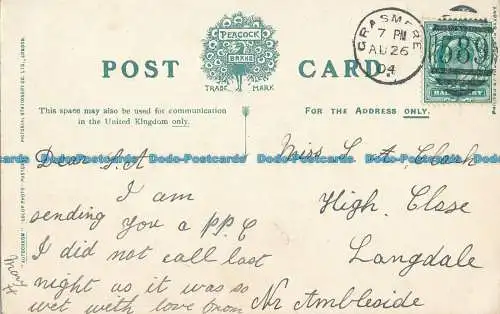 PEACOCK
BRAND
TRADE MARK
POST CARD
GRASMERE
7 PM
AU 26
04
This space may also be used for communication
in the United Kingdom only.
FOR THE ADDRESS ONLY.
Dodo-Postcards Dodo-Postcards Dodo-Postcards Dodo-Postcards Dodo-Postcards
Dear S.A
I am
sending you a p.p.c
I did not call last
night as it was so
wet with love from
Miss S A Clark
High Close
Langdale
Nr Ambleside